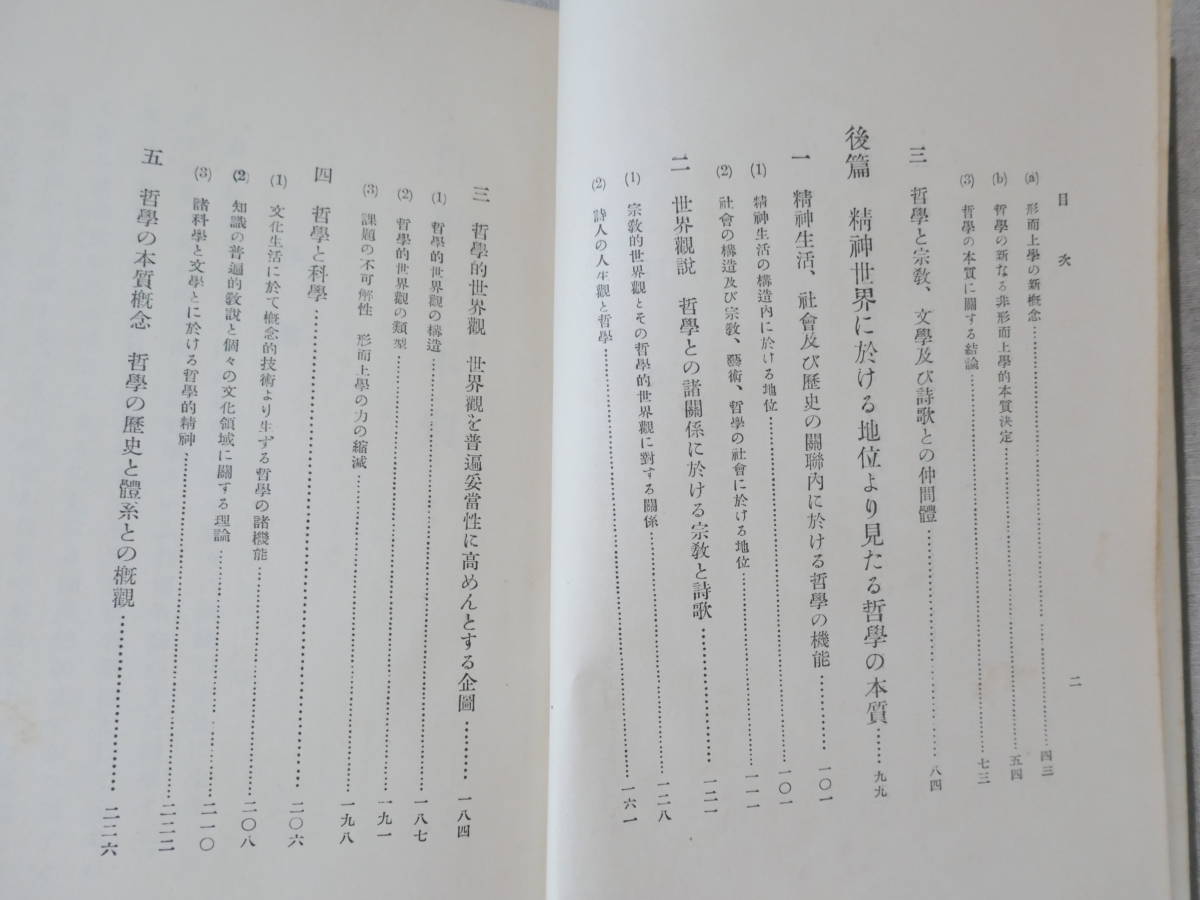 目次
二
(a) 形而上學の新槪念……四三
(b) 哲學の新なる非形而上學的本質決定……五四
(3) 哲學の本質に關する結論……七三
三 哲學と宗敎、文學及び詩歌との仲間體……八四
後篇 精神世界に於ける地位より見たる哲學の本質……九九
一 精神生活、社會及び歷史の關聯內に於ける哲學の機能……一〇一
(1) 精神生活の構造內に於ける地位……一〇一
(2) 社會の構造及び宗敎、藝術、哲學の社會に於ける地位……一一一
二 世界觀說 哲學との諸關係に於ける宗敎と詩歌……一二一
(1) 宗敎的世界觀とその哲學的世界觀に對する關係……一二八
(2) 詩人の人生觀と哲學……一六一
三 哲學的世界觀 世界觀を普遍妥當性に高めんとする企圖……一八四
(1) 哲學的世界觀の構造……一八七
(2) 哲學的世界觀の類型……一九一
(3) 課題の不可解性 形而上學の力の縮減……一九八
四 哲學と科學……二〇六
(1) 文化生活に於て槪念的技術より生ずる哲學の諸機能……二〇八
(2) 知識の普遍的敎說と個々の文化領域に關する理論……二一〇
(3) 諸科學と文學とに於ける哲學的精神……二二二
五 哲學の本質槪念 哲學の歷史と體系との槪觀……二二六